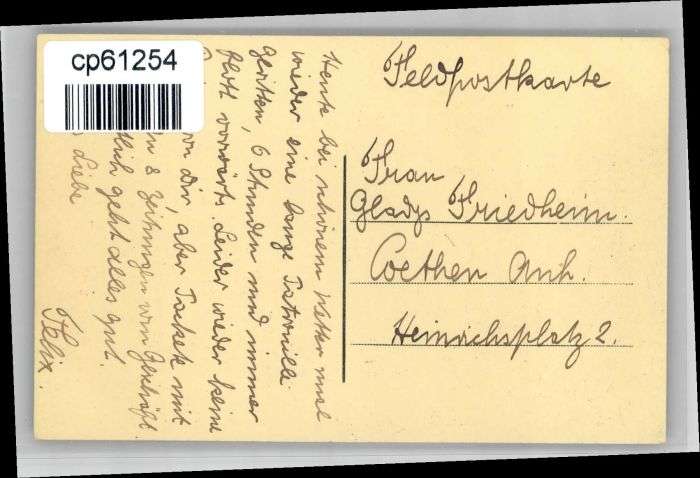 cp61254
Feldpostkarte
Frau
Gladys Friedheim.
Coethen Anh.
Heinrichsplatz 2.
Heute bei schönem Wetter mal
wieder eine lange Patrouille
geritten, 6 Stunden und immer
flott vorwärts. Leider wieder keine
von Dir, aber Packet mit
8 Zeitungen vom Geschäft
geht alles gut.
Liebe
Felix.